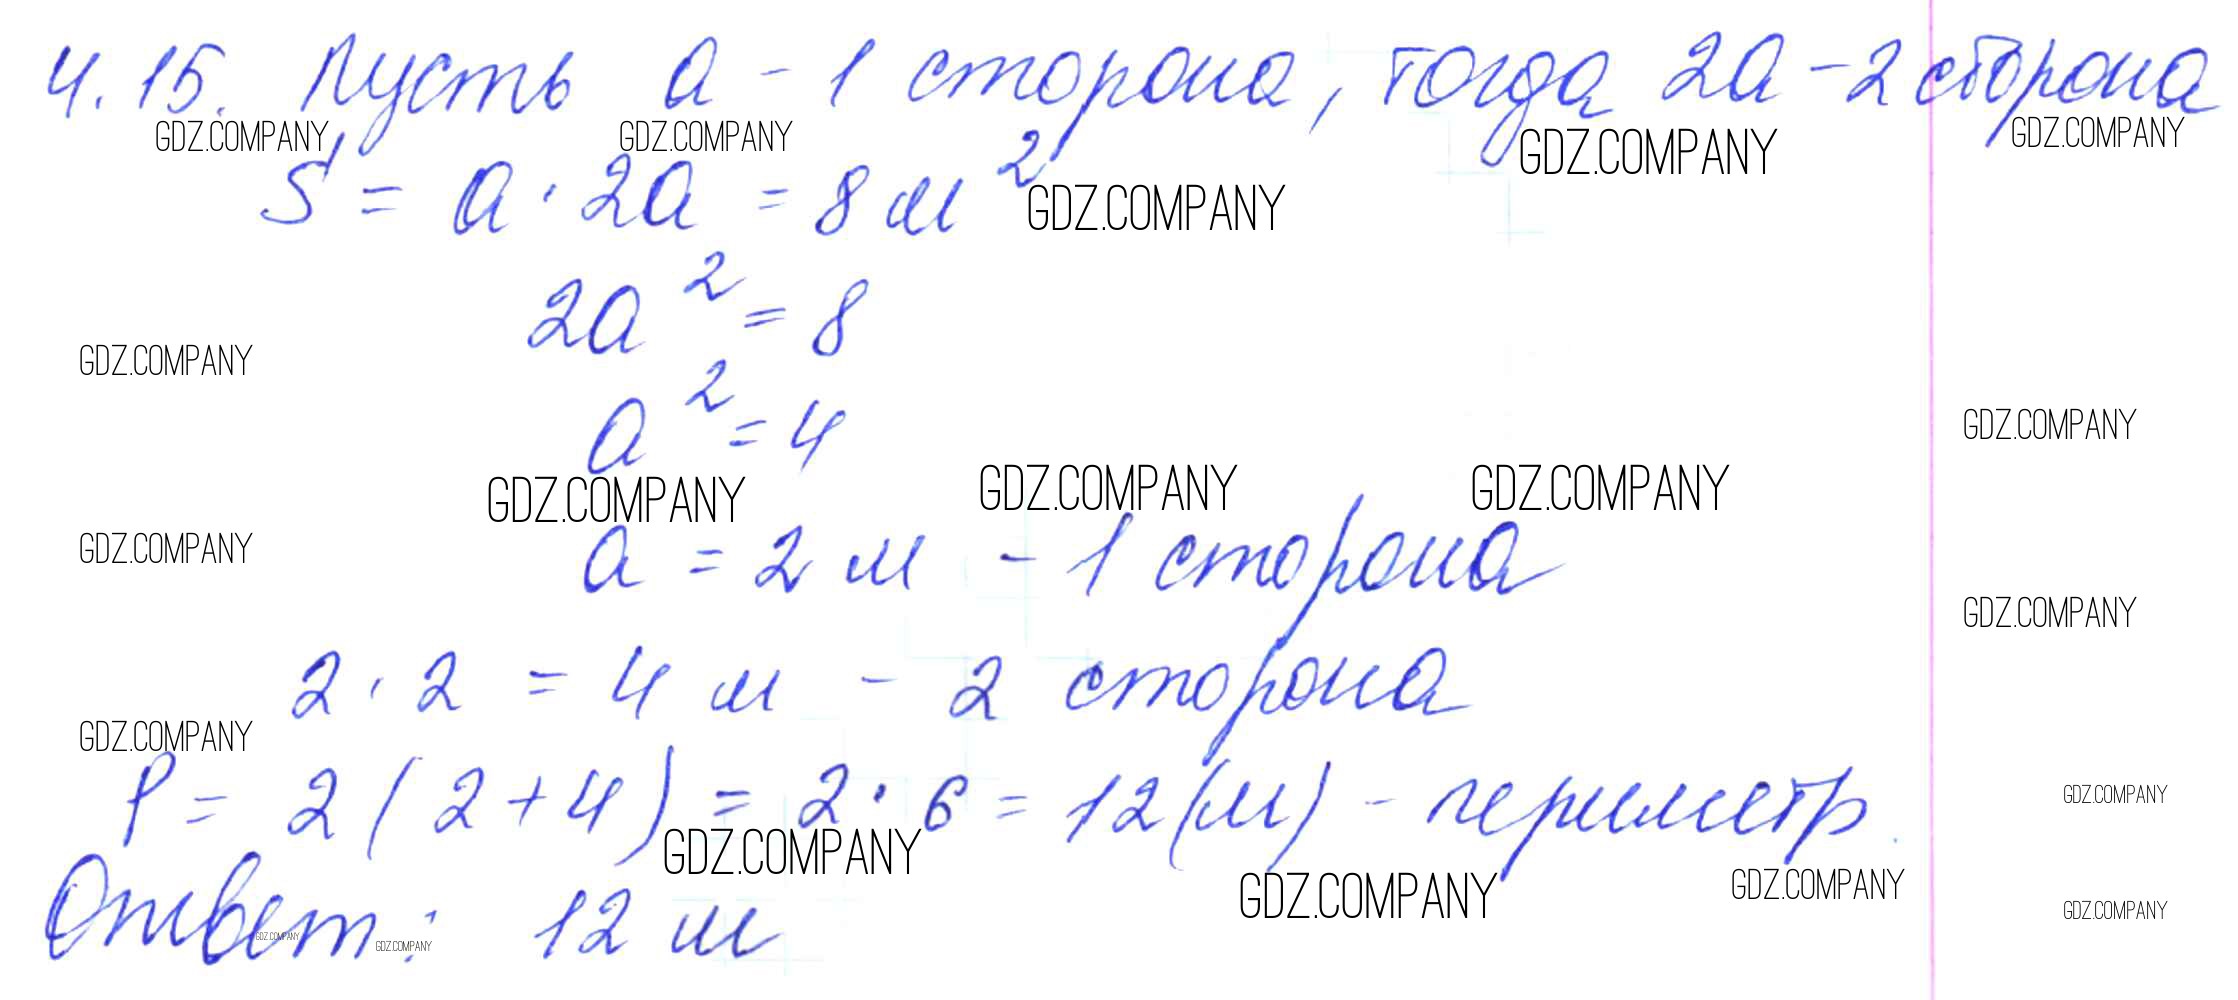 4.15. Пусть a - 1 сторона, тогда 2a - 2 сторона
GDZ.COMPANY GDZ.COMPANY GDZ.COMPANY GDZ.COMPANY
S = a · 2a = 8 м²
GDZ.COMPANY
2a² = 8
GDZ.COMPANY
a² = 4
GDZ.COMPANY
GDZ.COMPANY GDZ.COMPANY GDZ.COMPANY
a = 2 м - 1 сторона
GDZ.COMPANY
GDZ.COMPANY
2 · 2 = 4 м - 2 сторона
GDZ.COMPANY
P = 2 (2 + 4) = 2 · 6 = 12 (м) - периметр.
GDZ.COMPANY
GDZ.COMPANY GDZ.COMPANY GDZ.COMPANY
Ответ: 12 м
GDZ.COMPANY
GDZ.COMPANY GDZ.COMPANY